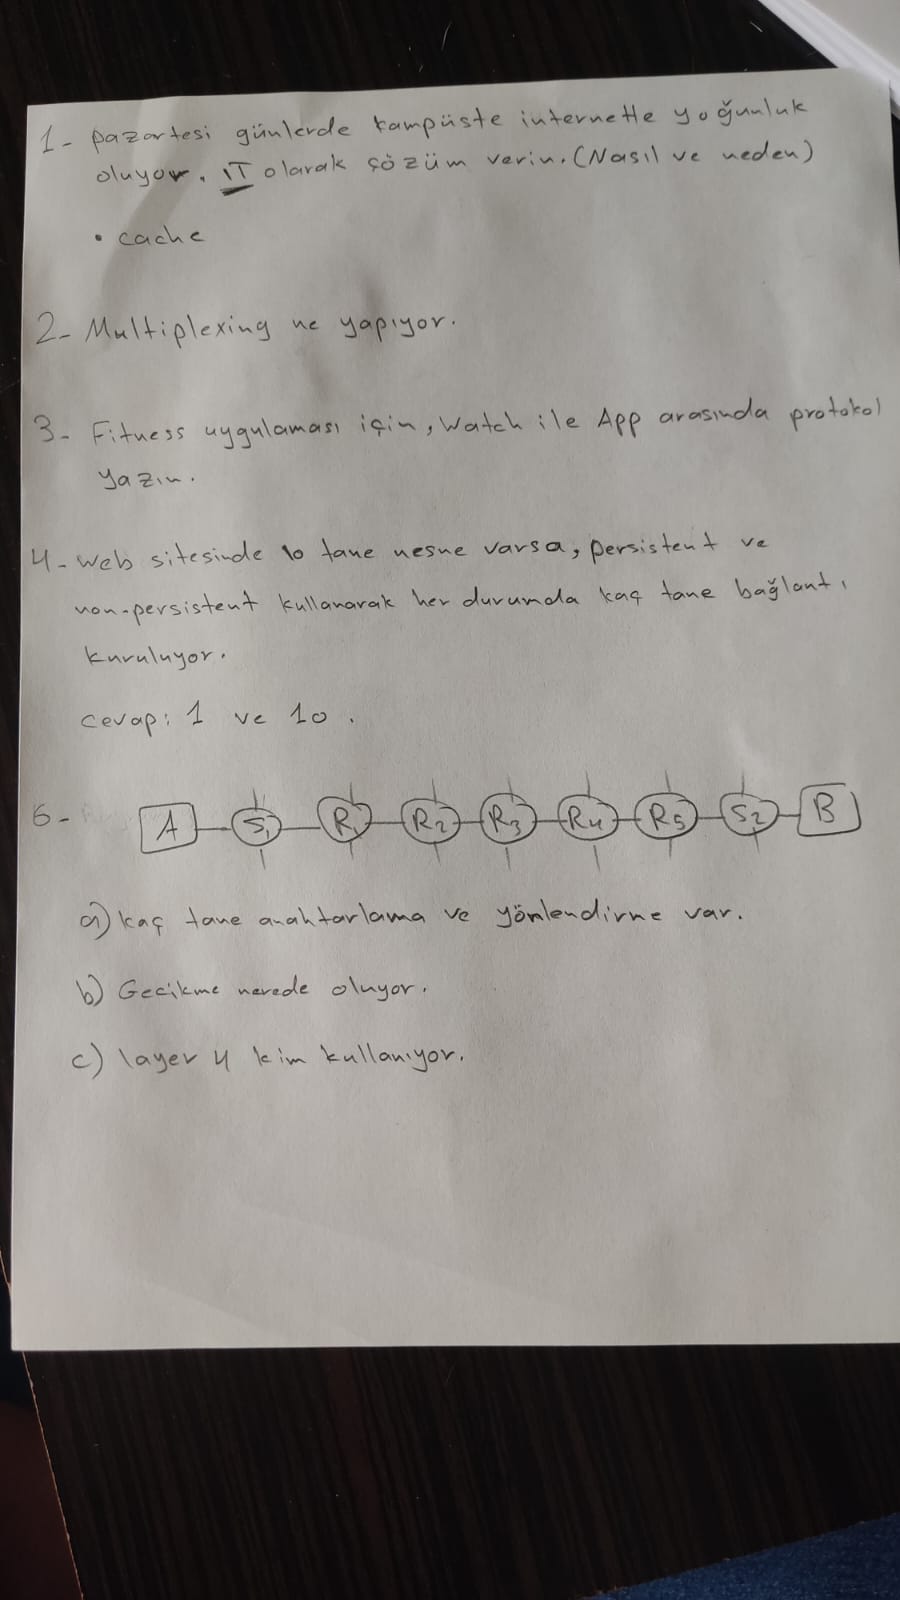 1- pazartesi günlerde kampüste internette yoğunluk
oluyor. IT olarak çözüm verin. (Nasıl ve neden)
• cache
2- Multiplexing ne yapıyor.
3- Fitness uygulaması için, Watch ile App arasında protokol
yazın.
4- web sitesinde 10 tane nesne varsa, persistent ve
non-persistent kullanarak her durumda kaç tane bağlantı
kuruluyor.
cevap: 1 ve 10.
6- A S1 R1 R2 R3 R4 R5 S2 B
a) kaç tane anahtarlama ve yönlendirme var.
b) Gecikme nerede oluyor.
c) layer 4 kim kullanıyor.